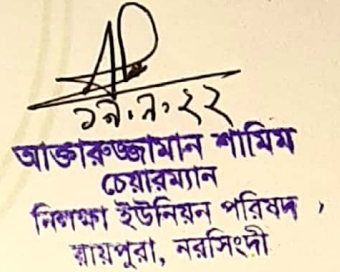 ১৯.৭.২২
আক্তারুজ্জামান শামিম
চেয়ারম্যান
নিলক্ষা ইউনিয়ন পরিষদ
রায়পুরা, নরসিংদী